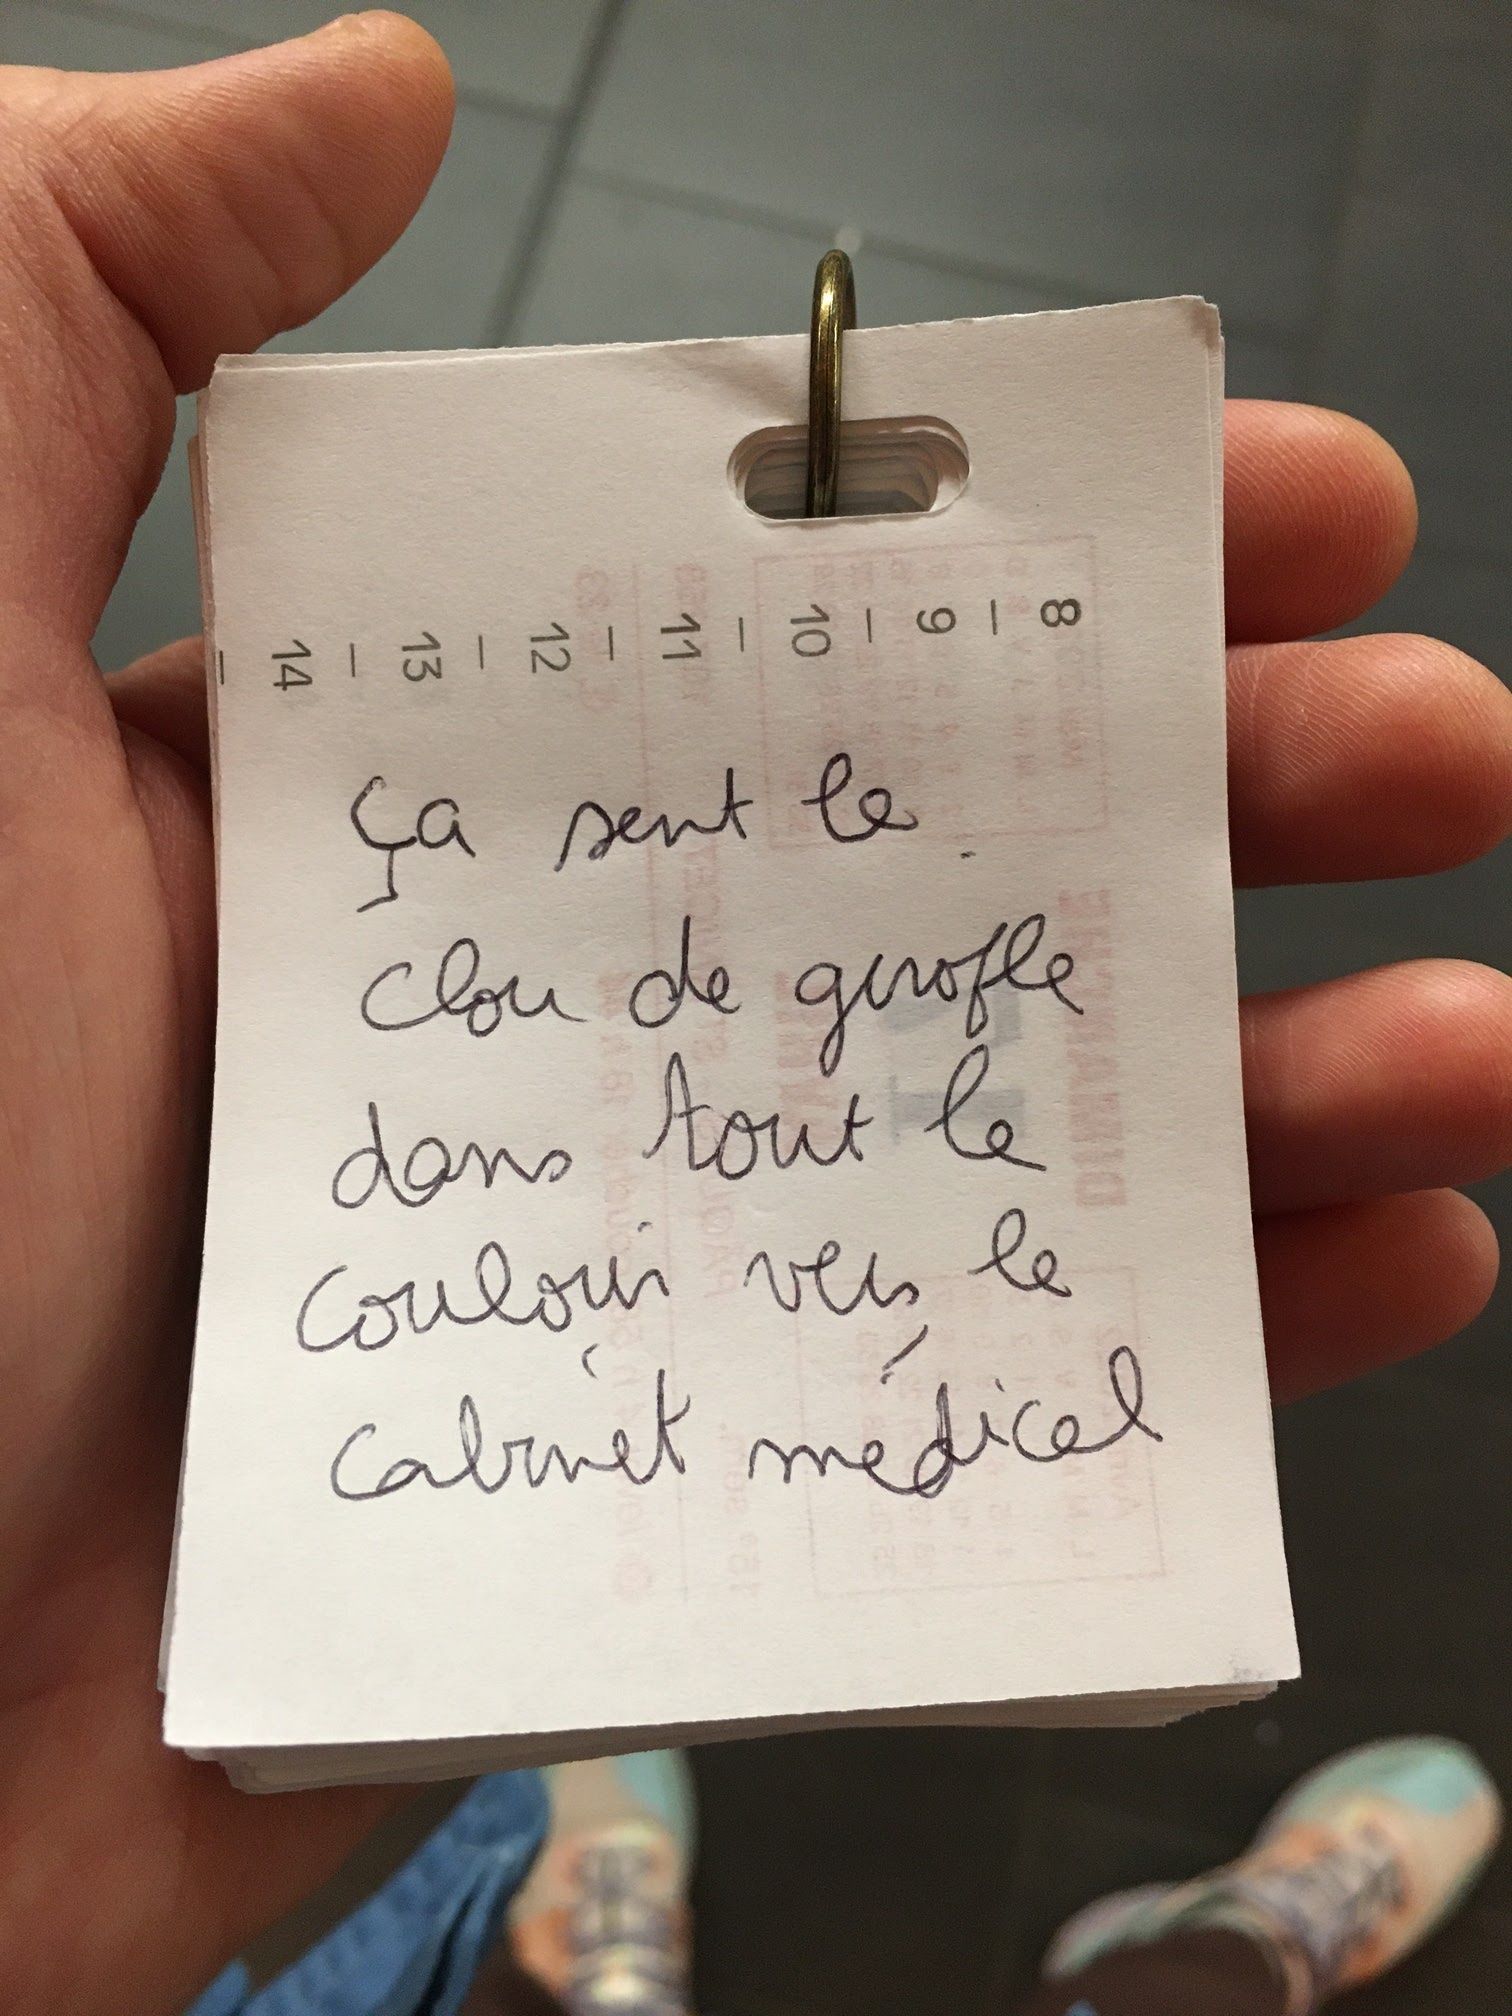 8 – 9 – 10 – 11 – 12 – 13 – 14 –
Ça sent le
clou de girofle
dans tout le
couloir vers le
cabinet médical